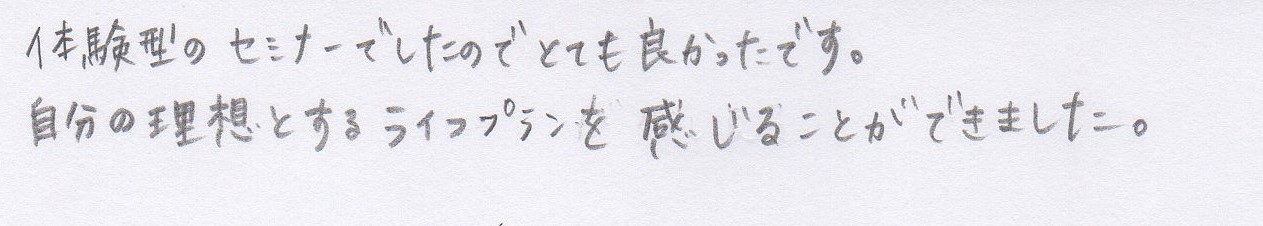 体験型のセミナーでしたのでとても良かったです。
自分の理想とするライフプランを感じることができました。